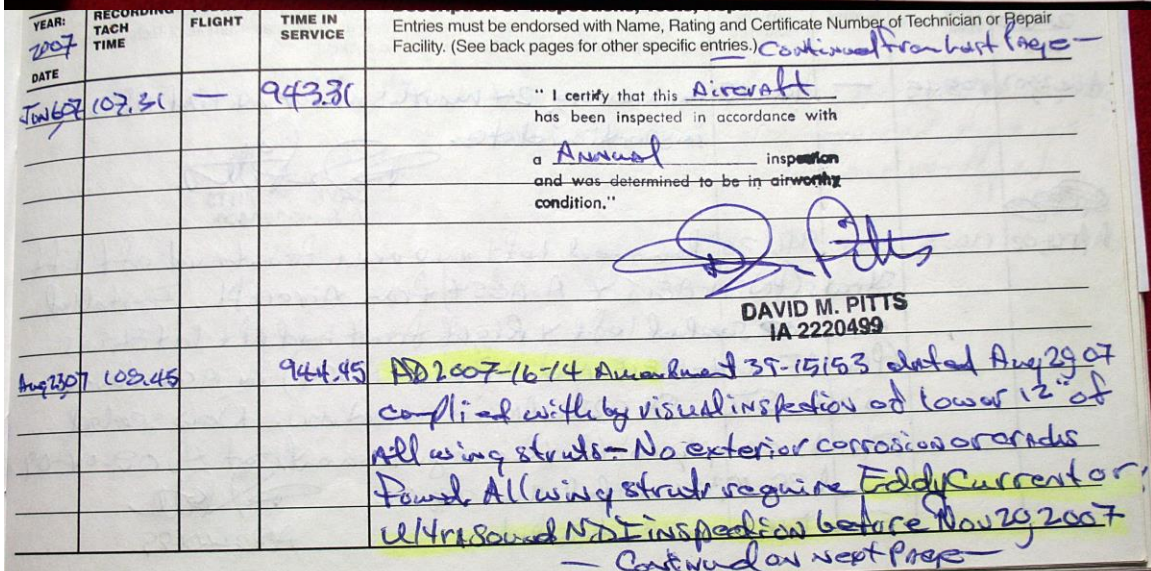 YEAR:
2007
DATE
RECORDING
TACH
TIME
FLIGHT
TIME IN
SERVICE
Entries must be endorsed with Name, Rating and Certificate Number of Technician or Repair
Facility. (See back pages for other specific entries.) — Continued from Last Page —
Jun607 107.31 — 943.31
" I certify that this Aircraft
has been inspected in accordance with
a Annual inspection
and was determined to be in airworthy
condition."
DAVID M. PITTS
IA 2220499
Aug2307 108.45 944.45 AD2007-16-14 Amendment 39-15153 dated Aug 29 07
complied with by visual inspection of lower 12" of
All wing struts - No exterior corrosion or cracks
Found. All wing struts require Eddy Current or
Ultrasound NDI inspection before Nov 29 2007
— Continued on Next Page —